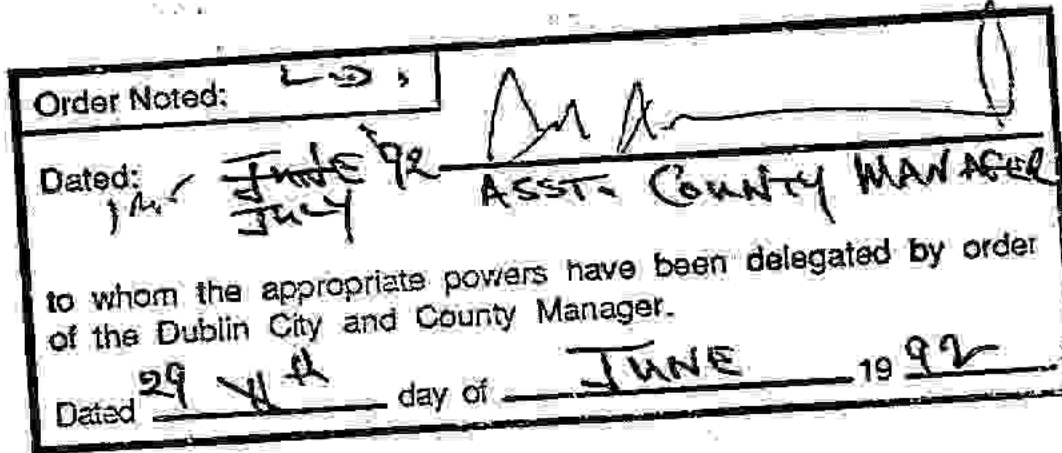 Order Noted:
Dated: June '92
July
ASST. COUNTY MANAGER
to whom the appropriate powers have been delegated by order
of the Dublin City and County Manager.
Dated 29 day of JUNE 1992